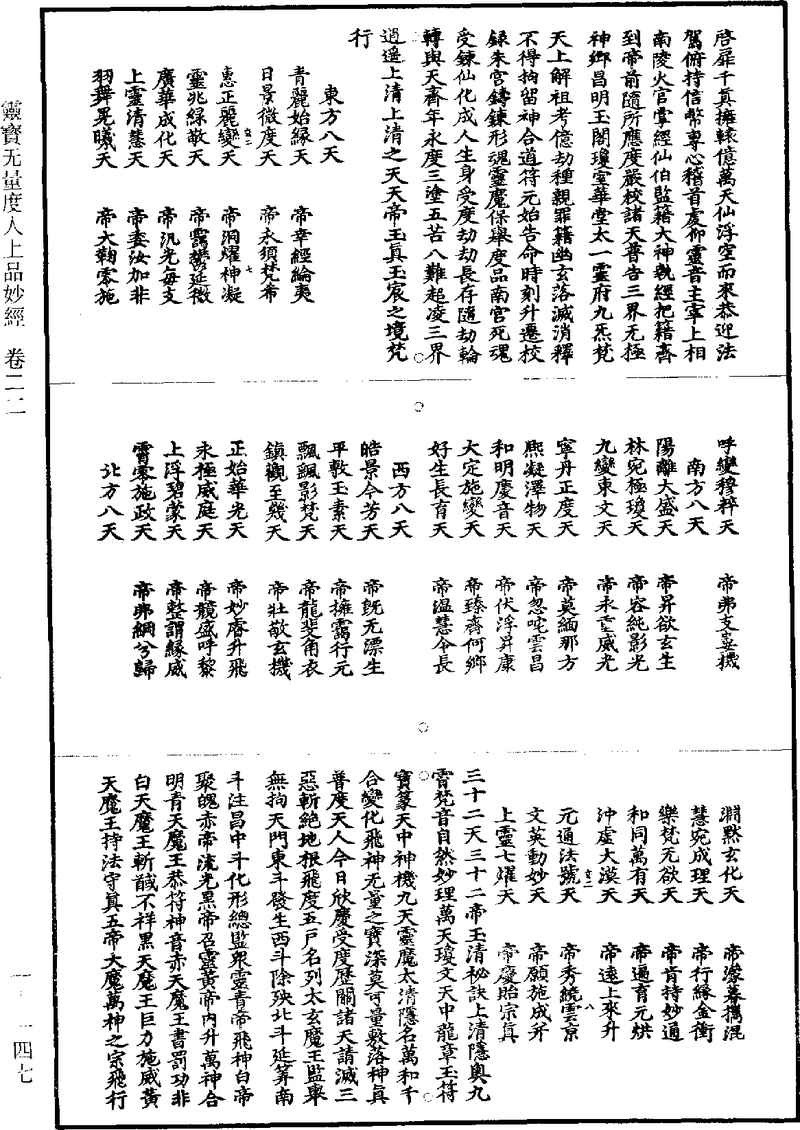 啓扉千真擁轅億萬天仙浮空而來恭迎法
駕俯持信幣專心稽首虔仰靈音主宰上相
南陵火官掌經仙伯監籍大神執經把籍齊
到帝前隨所應度嚴校諸天普告三界无極
神鄉昌明玉閣瓊室華堂太一靈府九炁梵
天上解祖考億劫種親罪籍幽玄落滅消釋
不得拘留神合道符元始告命時刻升遷校
録朱宮鑄鍊形魂靈魔保舉度品南宮死魂
受鍊仙化成人生身受度劫劫長存隨劫輪
轉與天齊年永度三塗五苦八難超凌三界
逍遥上清上清之天天帝玉真玉宸之境梵
行
東方八天
青麗始緣天 帝幸經綸夷
日景微度天 帝永須梵希
惠正麗變天 帝洞耀神凝
靈兆綠敬天 帝靄鬱延微
廣華成化天 帝汎光每支
上靈清慧天 帝委汝加非
羽舞晃曦天 帝大鞠零施
呼變穆粹天 帝弗支臺機
南方八天
陽離大盛天 帝昇欲玄生
林宛極瓊天 帝容純影光
九變東文天 帝永重威光
寧丹正度天 帝莫緬那方
熙凝澤物天 帝忽咤雲昌
和明慶音天 帝伏浮昇康
大定施變天 帝臻齊何鄉
好生長育天 帝温慧令長
西方八天
皓景今芳天 帝旣无漂生
平敷玉素天 帝擁靄行元
飄飄影梵天 帝龍斐角衣
鎮觀至幾天 帝壯敬玄機
正始華光天 帝妙磨升飛
永極威庭天 帝競盛呼黎
上浮碧蒙天 帝整謂緣威
霄零施政天 帝弗綱兮歸
北方八天
淵黙玄化天 帝濛暮攜混
慧宛成理天 帝行緣金衝
樂梵无欲天 帝肯持妙通
和同萬有天 帝遍育元烘
沖虛大漠天 帝遠上來升
元通法號天 帝秀繞雲京
文英動妙天 帝願施成弁
上靈七耀天 帝慶貽宗真
三十二天三十二帝玉清秘訣上清隱奥九
霄梵音自然妙理萬天瓊文天中龍章玉符
寶篆天中神機九天靈魔太清隱名萬和千
合變化飛神无量之寶深莫可量敷落神真
普度天人今日欣慶受度歷關諸天請滅三
惡斬絕地根飛度五戶名列太玄魔王監舉
無拘天門東斗發生西斗除殃北斗延筭南
斗注昌中斗化形總監衆靈青帝飛神白帝
聚魄赤帝流光黑帝召靈黃帝内升萬神合
明青天魔王恭符神音赤天魔王書罰功非
白天魔王斬馘不祥黑天魔王巨力施威黃
天魔王持法守真五帝大魔萬神之宗飛行
靈寶无量度人上品妙經 卷二二
一·一四七